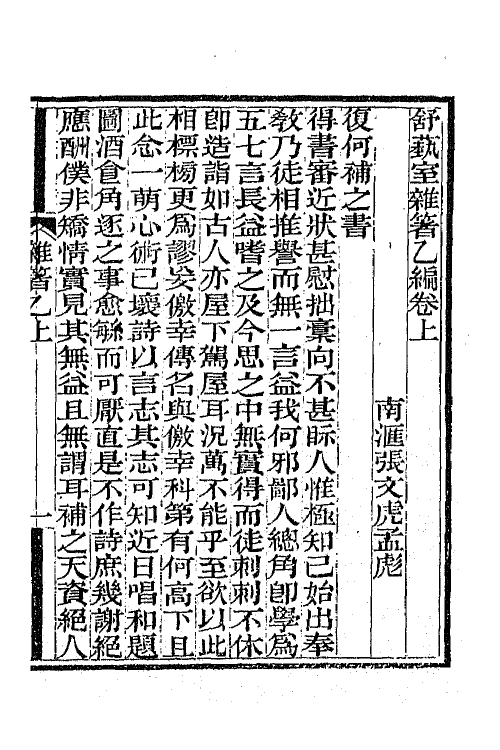 舒藝室雜著乙編卷上
南滙張文虎孟彪
復何補之書
得書審近狀甚慰拙稾向不甚眎人惟極知己始出奉
敎乃徒相推譽而無一言益我何邪鄙人總角卽學爲
五七言長益嗜之及今思之中無實得而徒刺刺不休
卽造詣如古人亦屋下駕屋耳況萬不能乎至欲以此
相標榜更爲謬妄儌幸傳名與儌幸科第有何高下且
此念一萌心術已壞詩以言志其志可知近日唱和題
圖酒食角逐之事愈緐而可厭直是不作詩庶幾謝絕
應酬僕非矯情實見其無益且無謂耳補之天資絕人
雜著乙上
一